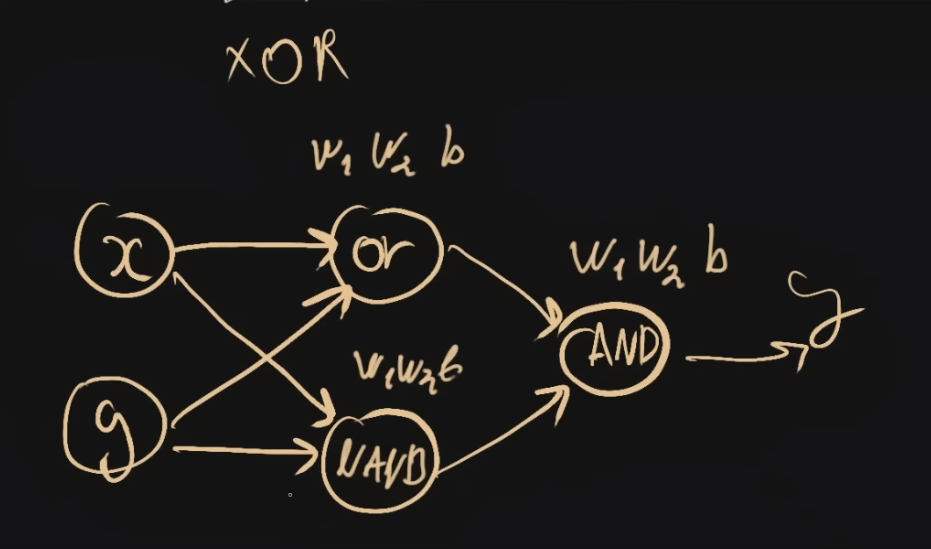 XOR
w₁ w₂ b
x
or
w₁ w₂ b
AND
y
w₁ w₂ b
y
NAND